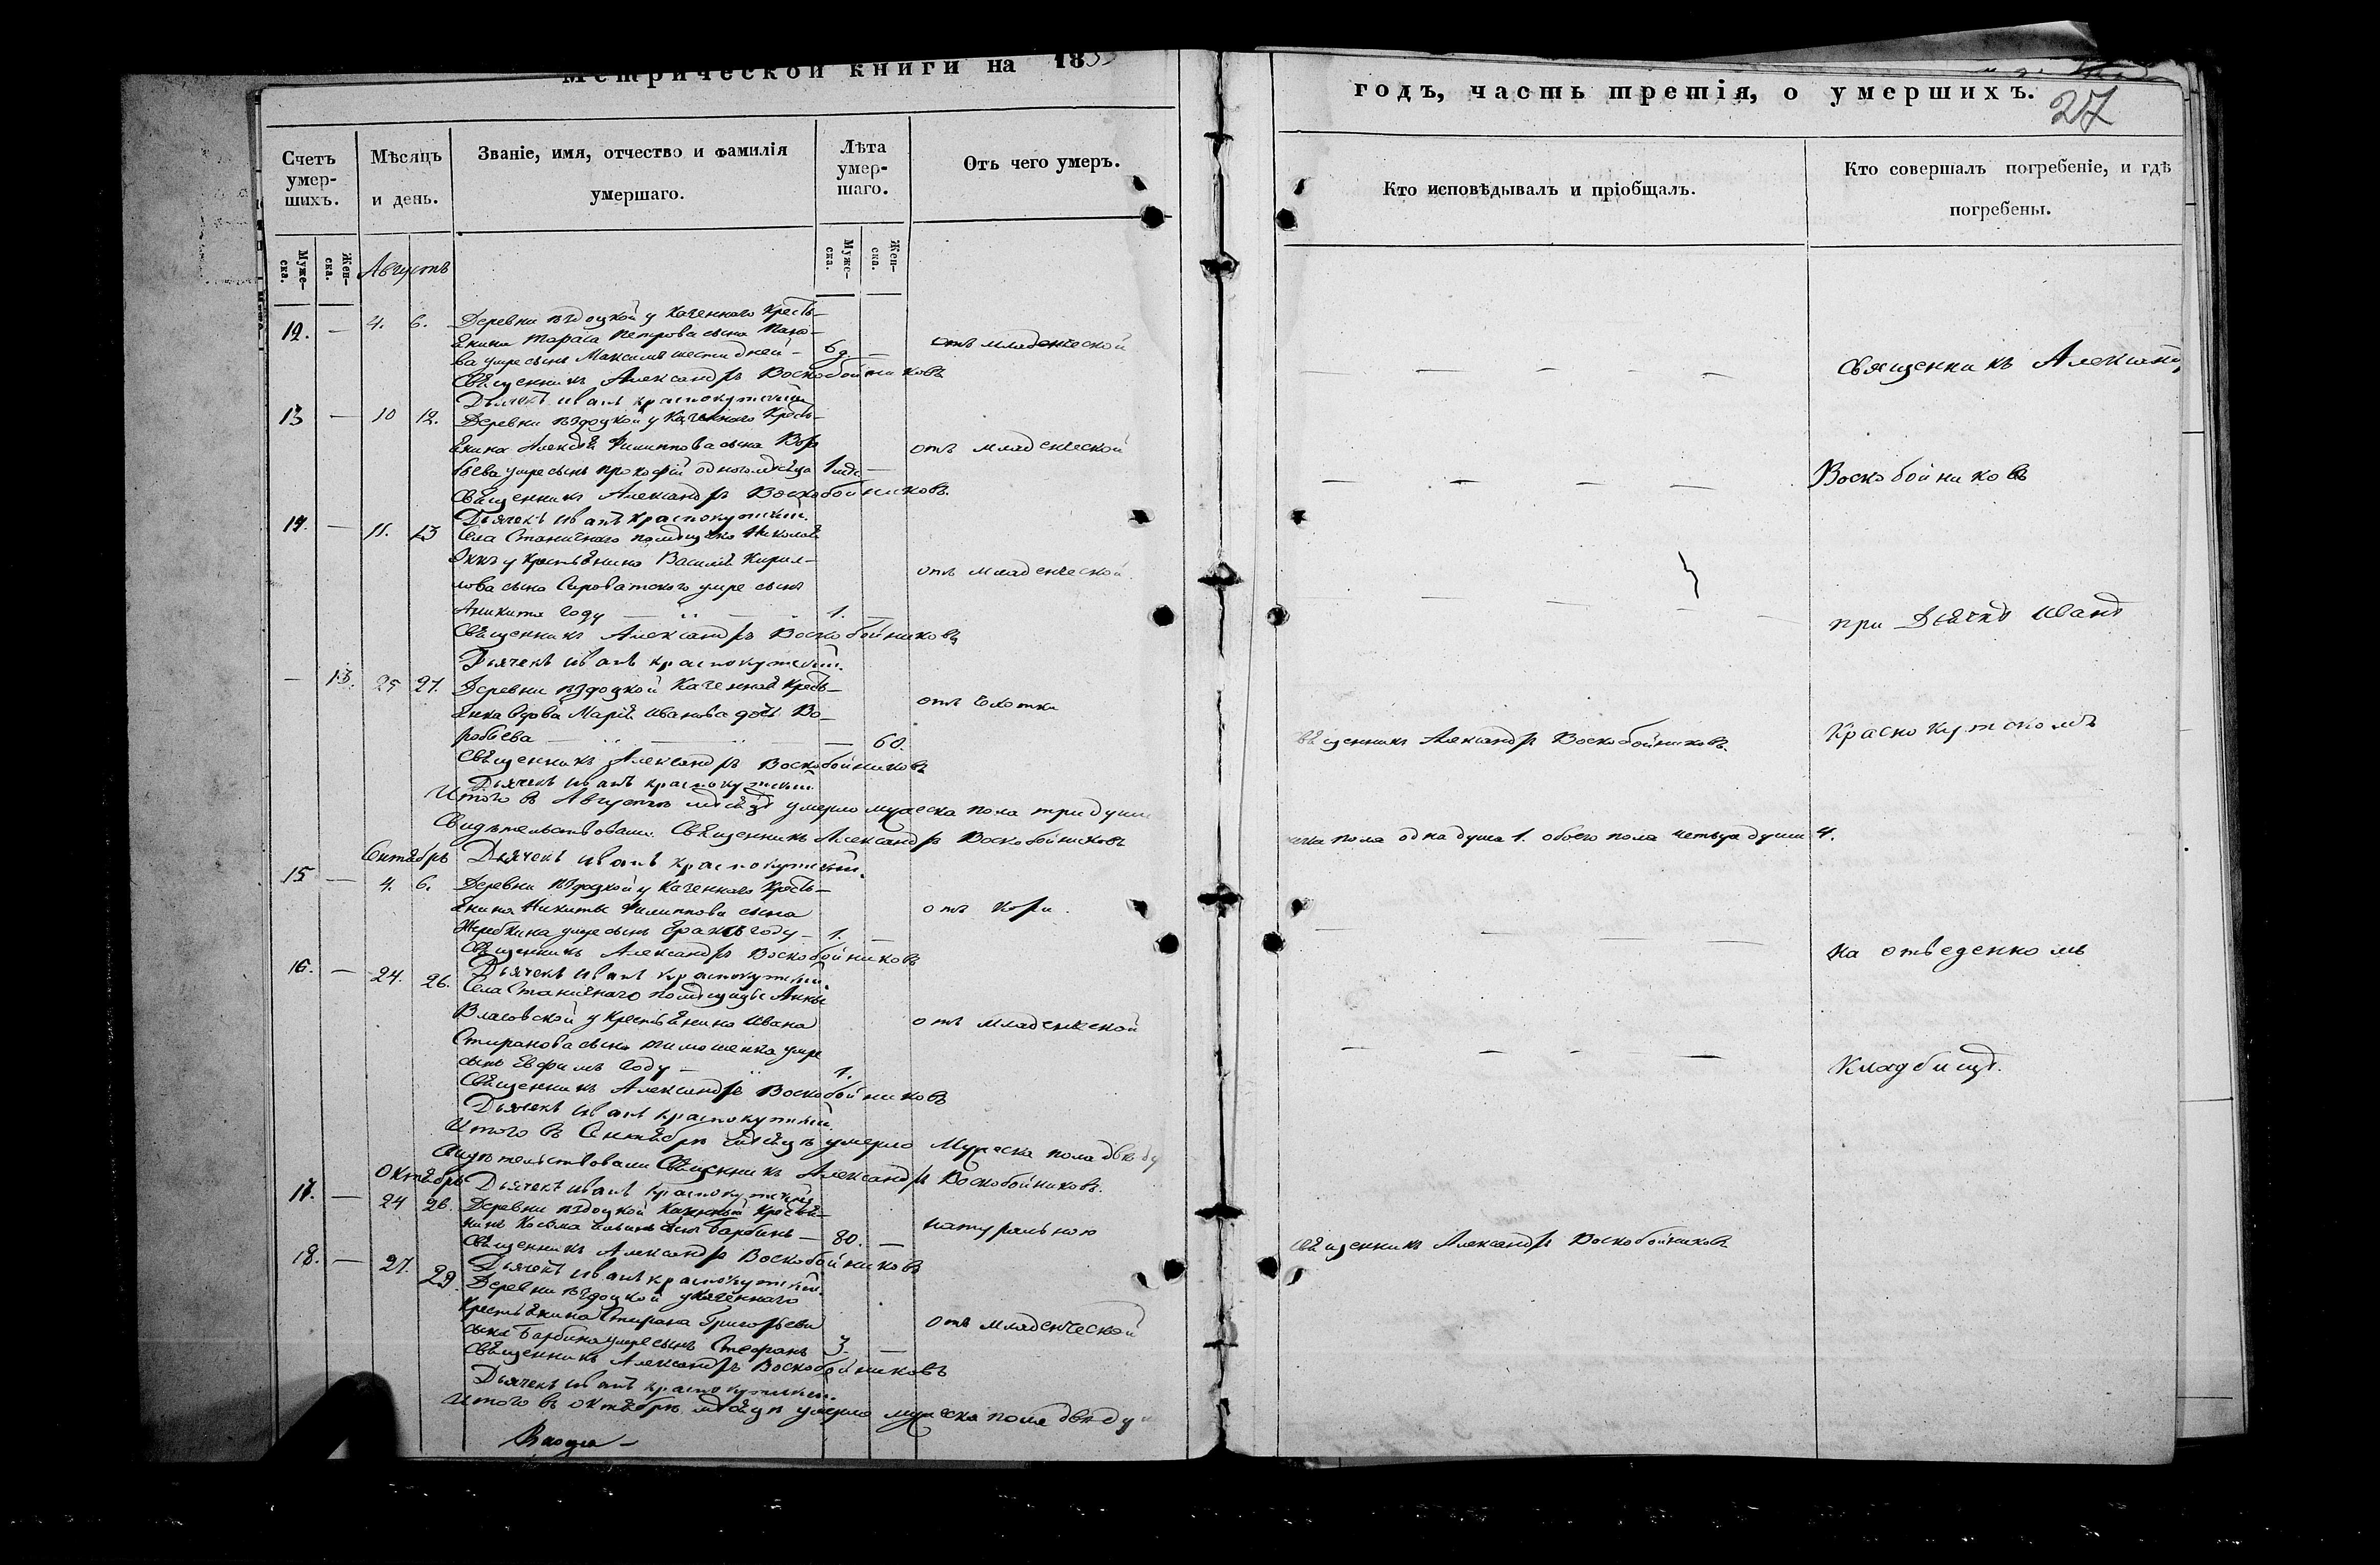 Метрической книги на 183
годъ, часть третія, о умершихъ.
27
Счетъ умер-шихъ.
Мѣсяцъ и день.
Званіе, имя, отчество и фамилія умершаго.
Лѣта умер-шаго.
Отъ чего умеръ.
Кто исповѣдывалъ и пріобщалъ.
Кто совершалъ погребеніе, и гдѣ погребены.
Муже-ска.
Жен-ска.
Муже-ска.
Жен-ска.
Августъ
12. — 4. 6. Деревни у Казеннаго Кресть-
янина Тараса Петрова сына
ва умре сынъ Максимъ шести дней — 6 д. — отъ младенческой
Священникъ Александръ Воскобойниковъ
Дьячекъ Иванъ Краснокутский
13 — 10 12. Деревни у Казеннаго Кресть-
янина Алексѣя Филиппова сына Воро
бьева умре сынъ Прокофій одного мѣсяца 1 мѣс — отъ младенческой
Священникъ Александръ Воскобойниковъ.
Дьячекъ Иванъ Краснокутский.
14. — 11. 13 Села Станичнаго помѣщика Николая
у крестьянина Василія Кирил-
лова сына Сыроватского умре сынъ отъ младенческой.
Аникита году — 1. —
Священникъ Александръ Воскобойниковъ
Дьячекъ Иванъ Краснокутский.
— 13. 25 27. Деревни Казенная кресть-
янка вдова Марія Иванова дочь Во-
робьева — 60. отъ чахотки
Священникъ Александръ Воскобойниковъ
Дьячекъ Иванъ Краснокутский
Итого въ Августѣ мѣсяцѣ умерло мужеска пола три души
Свидѣтельствовали: Священникъ Александръ Воскобойниковъ
Дьячекъ Иванъ Краснокутский.
Сентябрь
15 — 4. 6. Деревни у Казеннаго Кресть-
янина Никиты Филиппова сына отъ кори.
Жеребкина умре сынъ году — 1. —
Священникъ Александръ Воскобойниковъ
Дьячекъ Иванъ Краснокутский.
16. — 24. 26. Села Станичнаго помѣщицы Анны
Власовской у крестьянина Ивана отъ младенческой
Стефанова сына Тимошенка умре
сынъ Евфимъ году — 1.
Священникъ Александръ Воскобойниковъ
Дьячекъ Иванъ Краснокутский
Итого въ Сентябрѣ мѣсяцѣ умерло мужеска пола двѣ ду
Свидѣтельствовали Священникъ Александръ Воскобойниковъ.
Дьячекъ Иванъ Краснокутский
Октябрь
17. — 24 26. Деревни Казенный Крестья-
нинъ Косьма сынъ Барбинъ — 80. — натуральною
Священникъ Александръ Воскобойниковъ
Дьячекъ Иванъ Краснокутский.
18. — 27. 29. Деревни у Казеннаго
Крестьянина Стефана Григорьева
сына Барбина умре сынъ Стефанъ 3. — отъ младенческой
Священникъ Александръ Воскобойниковъ
Дьячекъ Иванъ Краснокутский.
Итого въ Октябрѣ мѣсяцѣ умерло мужеска пола двѣ ду
Священникъ Александръ Воскобойниковъ
пола одна душа 1. обоего пола четыре души 4.
Священникъ Александръ Воскобойниковъ
Священникъ Александр
Воскобойниковъ
при Дьячкѣ Иванѣ
Краснокутскомъ
на отведенномъ
Кладбищѣ.